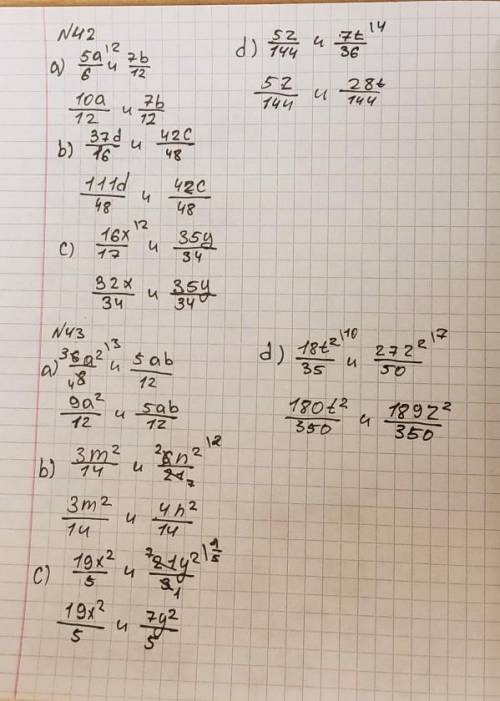 N42
a) 5a/6 \2 и 7b/12
10a/12 и 7b/12
b) 37d/16 и 42c/48
111d/48 и 42c/48
c) 16x/17 \2 и 35y/34
32x/34 и 35y/34
d) 5z/144 и 7t/36 \4
5z/144 и 28t/144
N43
a) 3 6a²/4 8 \3 и 5ab/12
9a²/12 и 5ab/12
b) 3m²/14 и 2 6n²/21 7 \2
3m²/14 и 4n²/14
c) 19x²/5 и 7 21y²/3 1 \1/5
19x²/5 и 7y²/5
d) 18t²/35 \10 и 27z²/50 \7
180t²/350 и 189z²/350